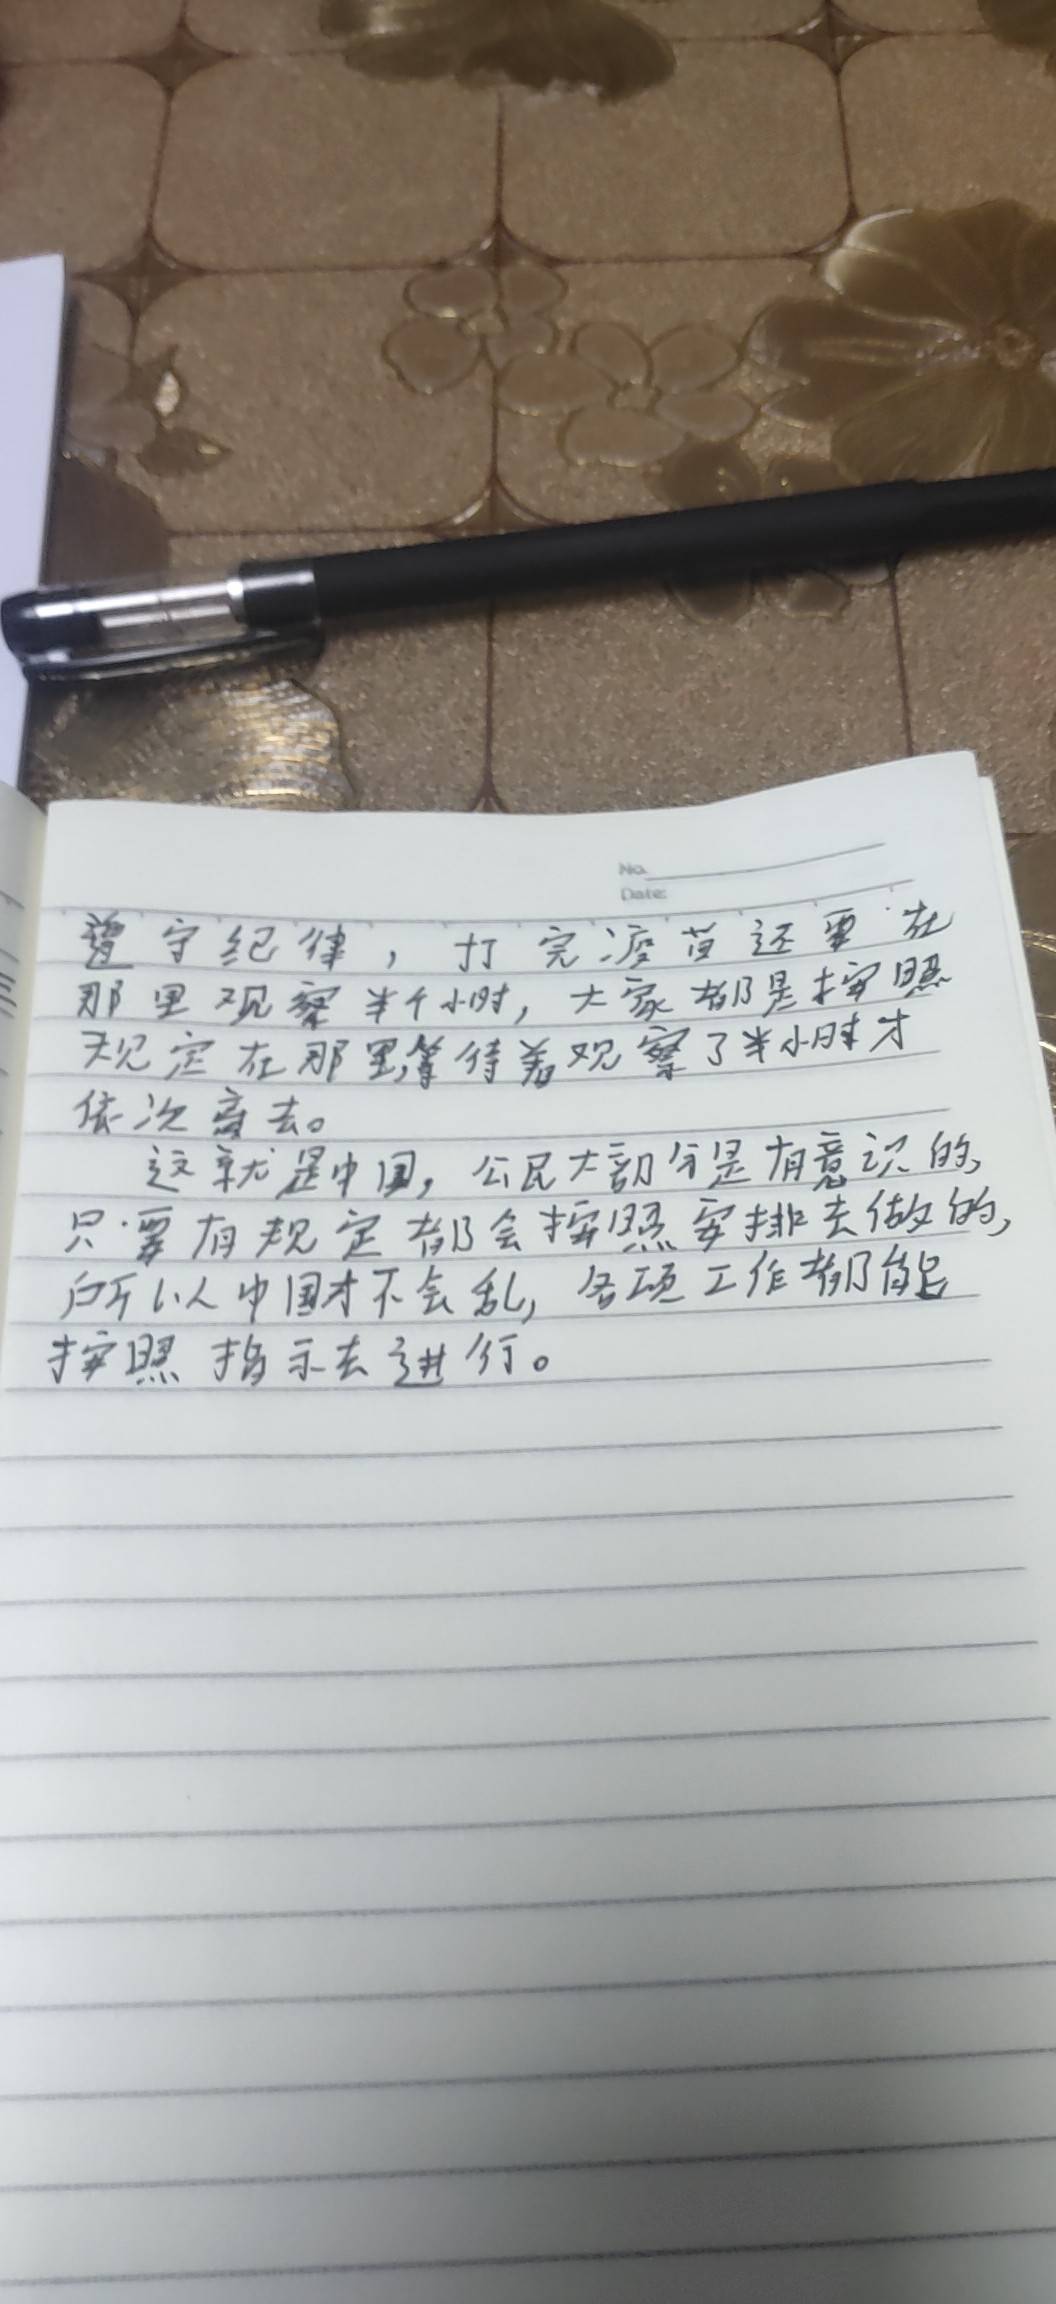 No.
Date:
遵守纪律，打完疫苗还要在
那里观察半个小时，大家都是按照
规定在那里等待着观察了半小时才
依次离去。
这就是中国，公民大部分是有意识的，
只要有规定都会按照安排去做的，
所以中国才不会乱，各项工作都能
按照指示去进行。